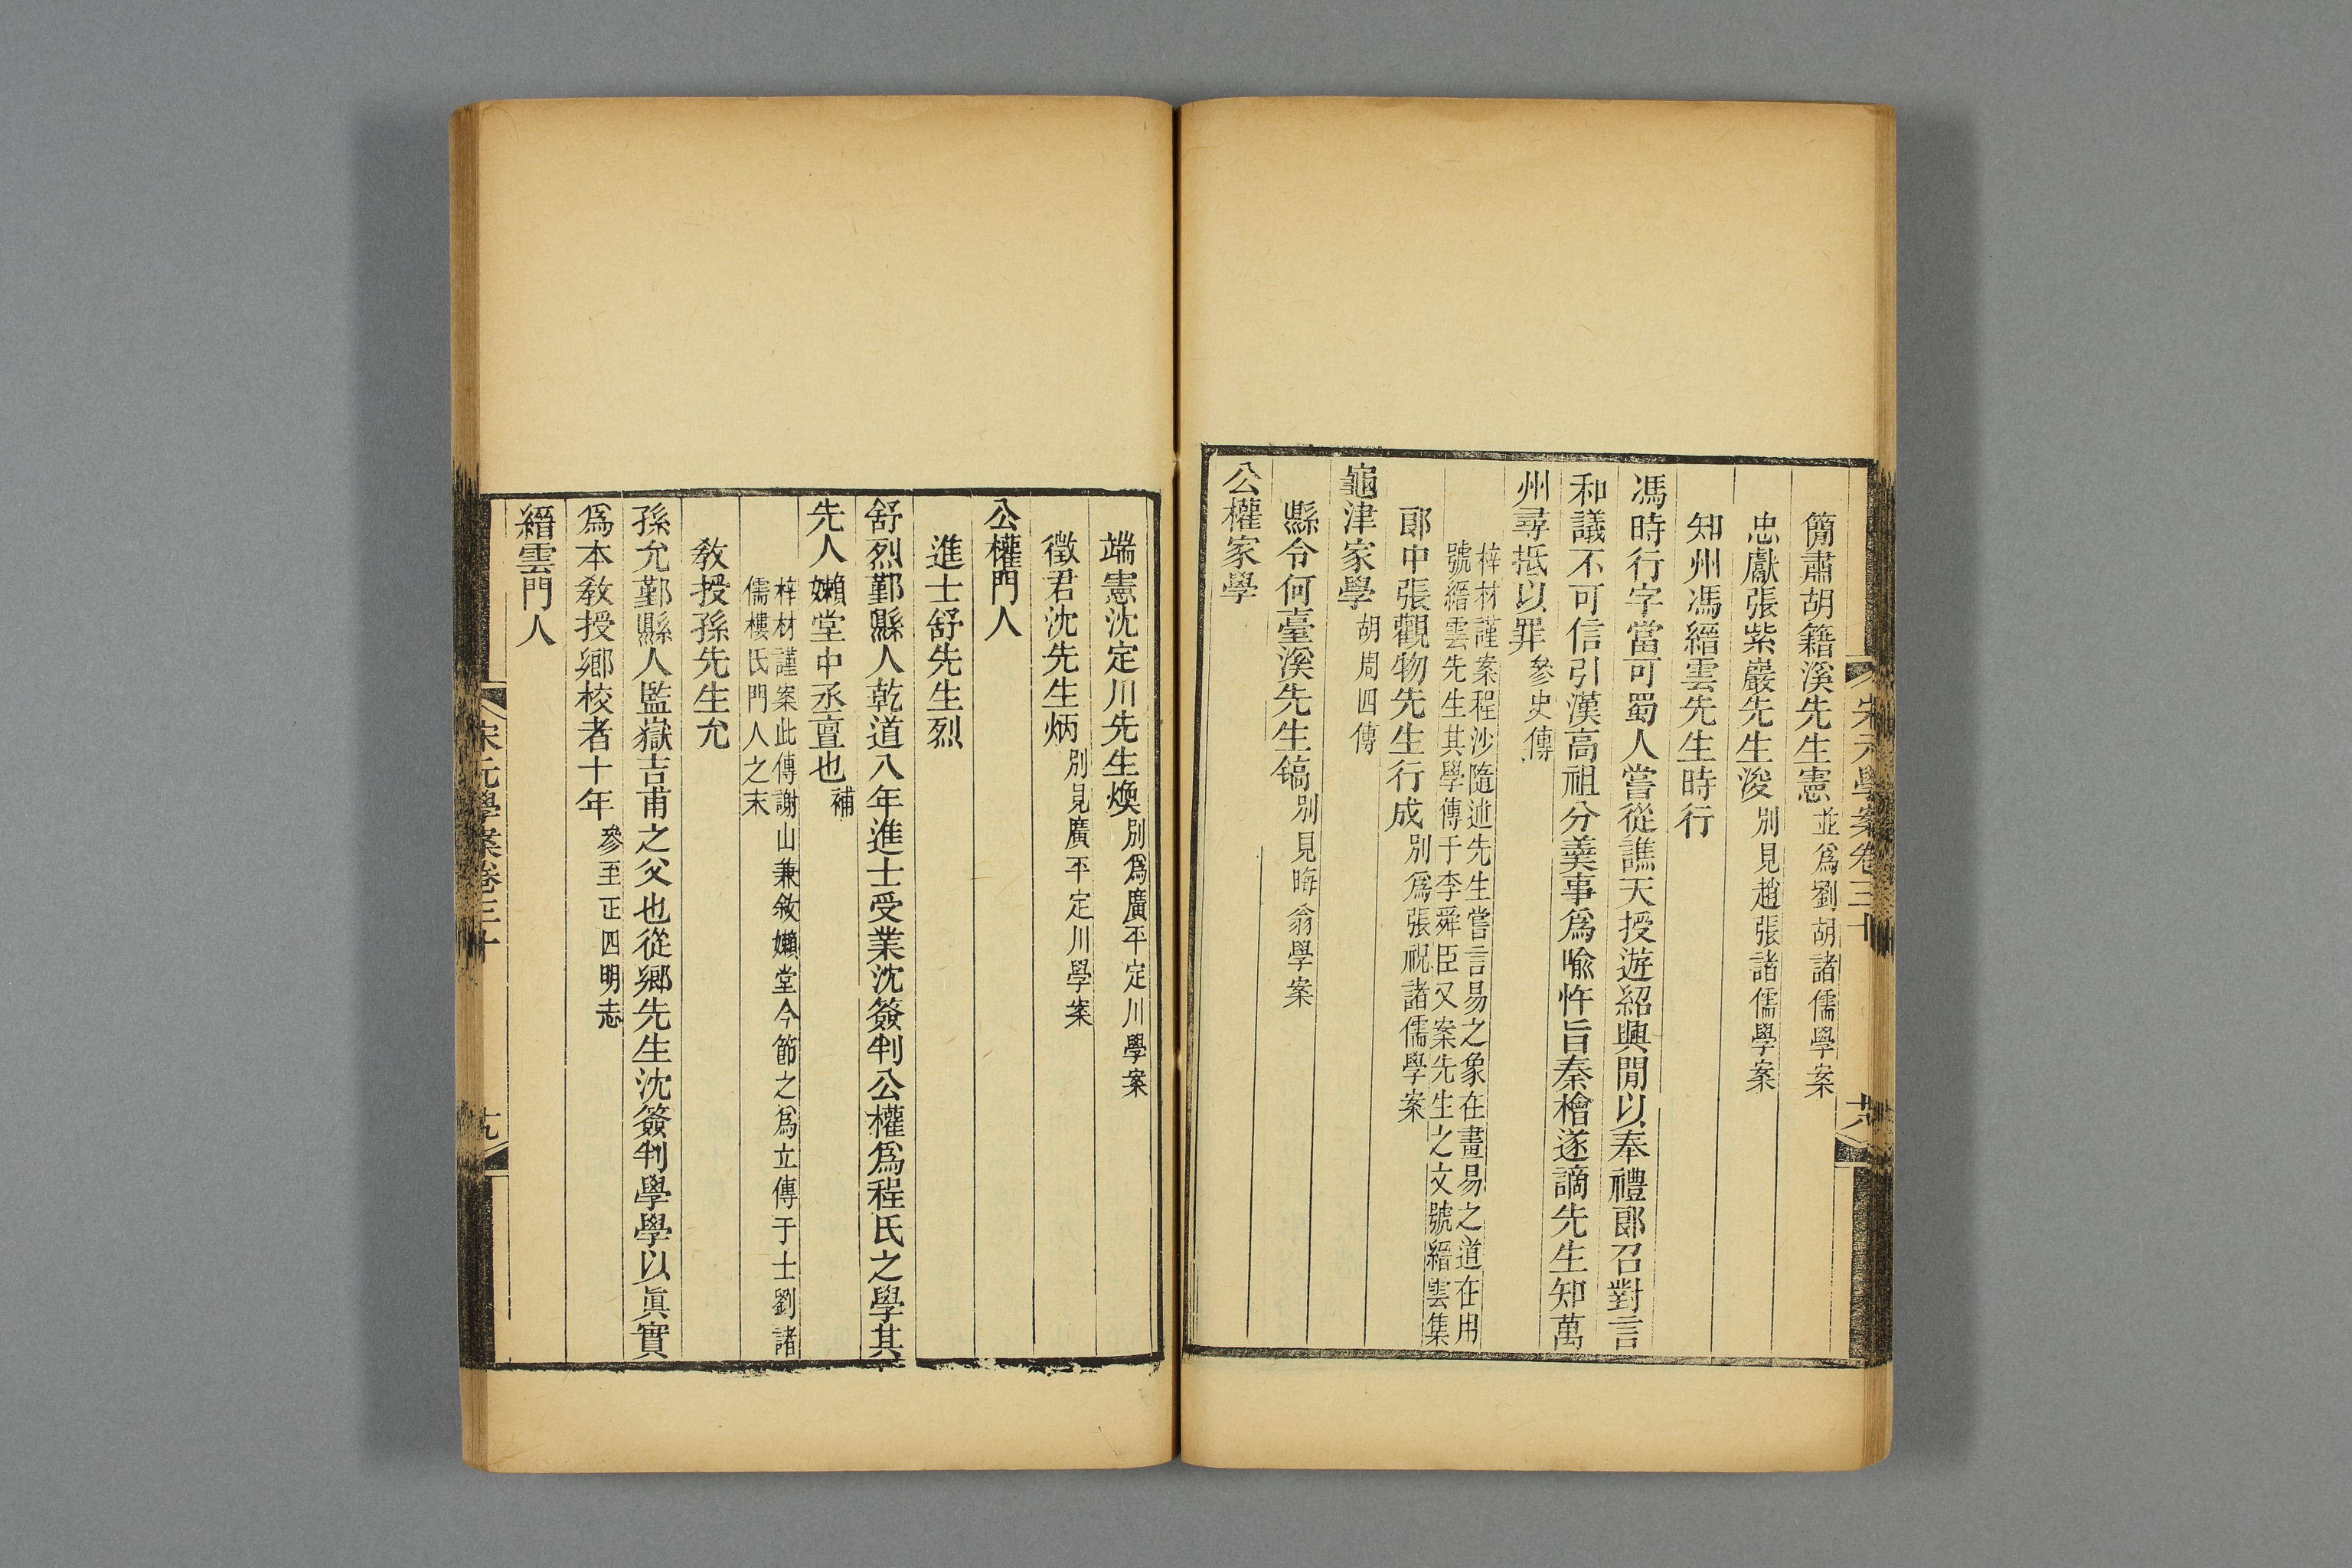 宋元學案卷三十
十八
簡肅胡籍溪先生憲並爲劉胡諸儒學案
忠獻張紫巖先生浚別見趙張諸儒學案
知州馮縉雲先生時行
馮時行字當可蜀人嘗從譙天授遊紹興閒以奉禮郞召對言
和議不可信引漢高祖分羹事爲喩忤旨秦檜遂謫先生知萬
州尋抵以罪參史傳
梓材謹案程沙隨述先生嘗言易之象在畫易之道在用
號縉雲先生其學傳于李舜臣又案先生之文號縉雲集
郞中張觀物先生行成別爲張祝諸儒學案
龜津家學胡周四傳
縣令何臺溪先生鎬別見晦翁學案
公權家學
端憲沈定川先生煥別爲廣平定川學案
徵君沈先生炳別見廣平定川學案
公權門人
進士舒先生烈
舒烈鄞縣人乾道八年進士受業沈簽判公權爲程氏之學其
先人嬾堂中丞亶也補
梓材謹案此傳謝山兼敘嬾堂今節之爲立傳于士劉諸
儒樓氏門人之末
敎授孫先生允
孫允鄞縣人監嶽吉甫之父也從鄉先生沈簽判學學以眞實
爲本敎授鄉校者十年參至正四明志
縉雲門人
宋元學案卷三十
十九